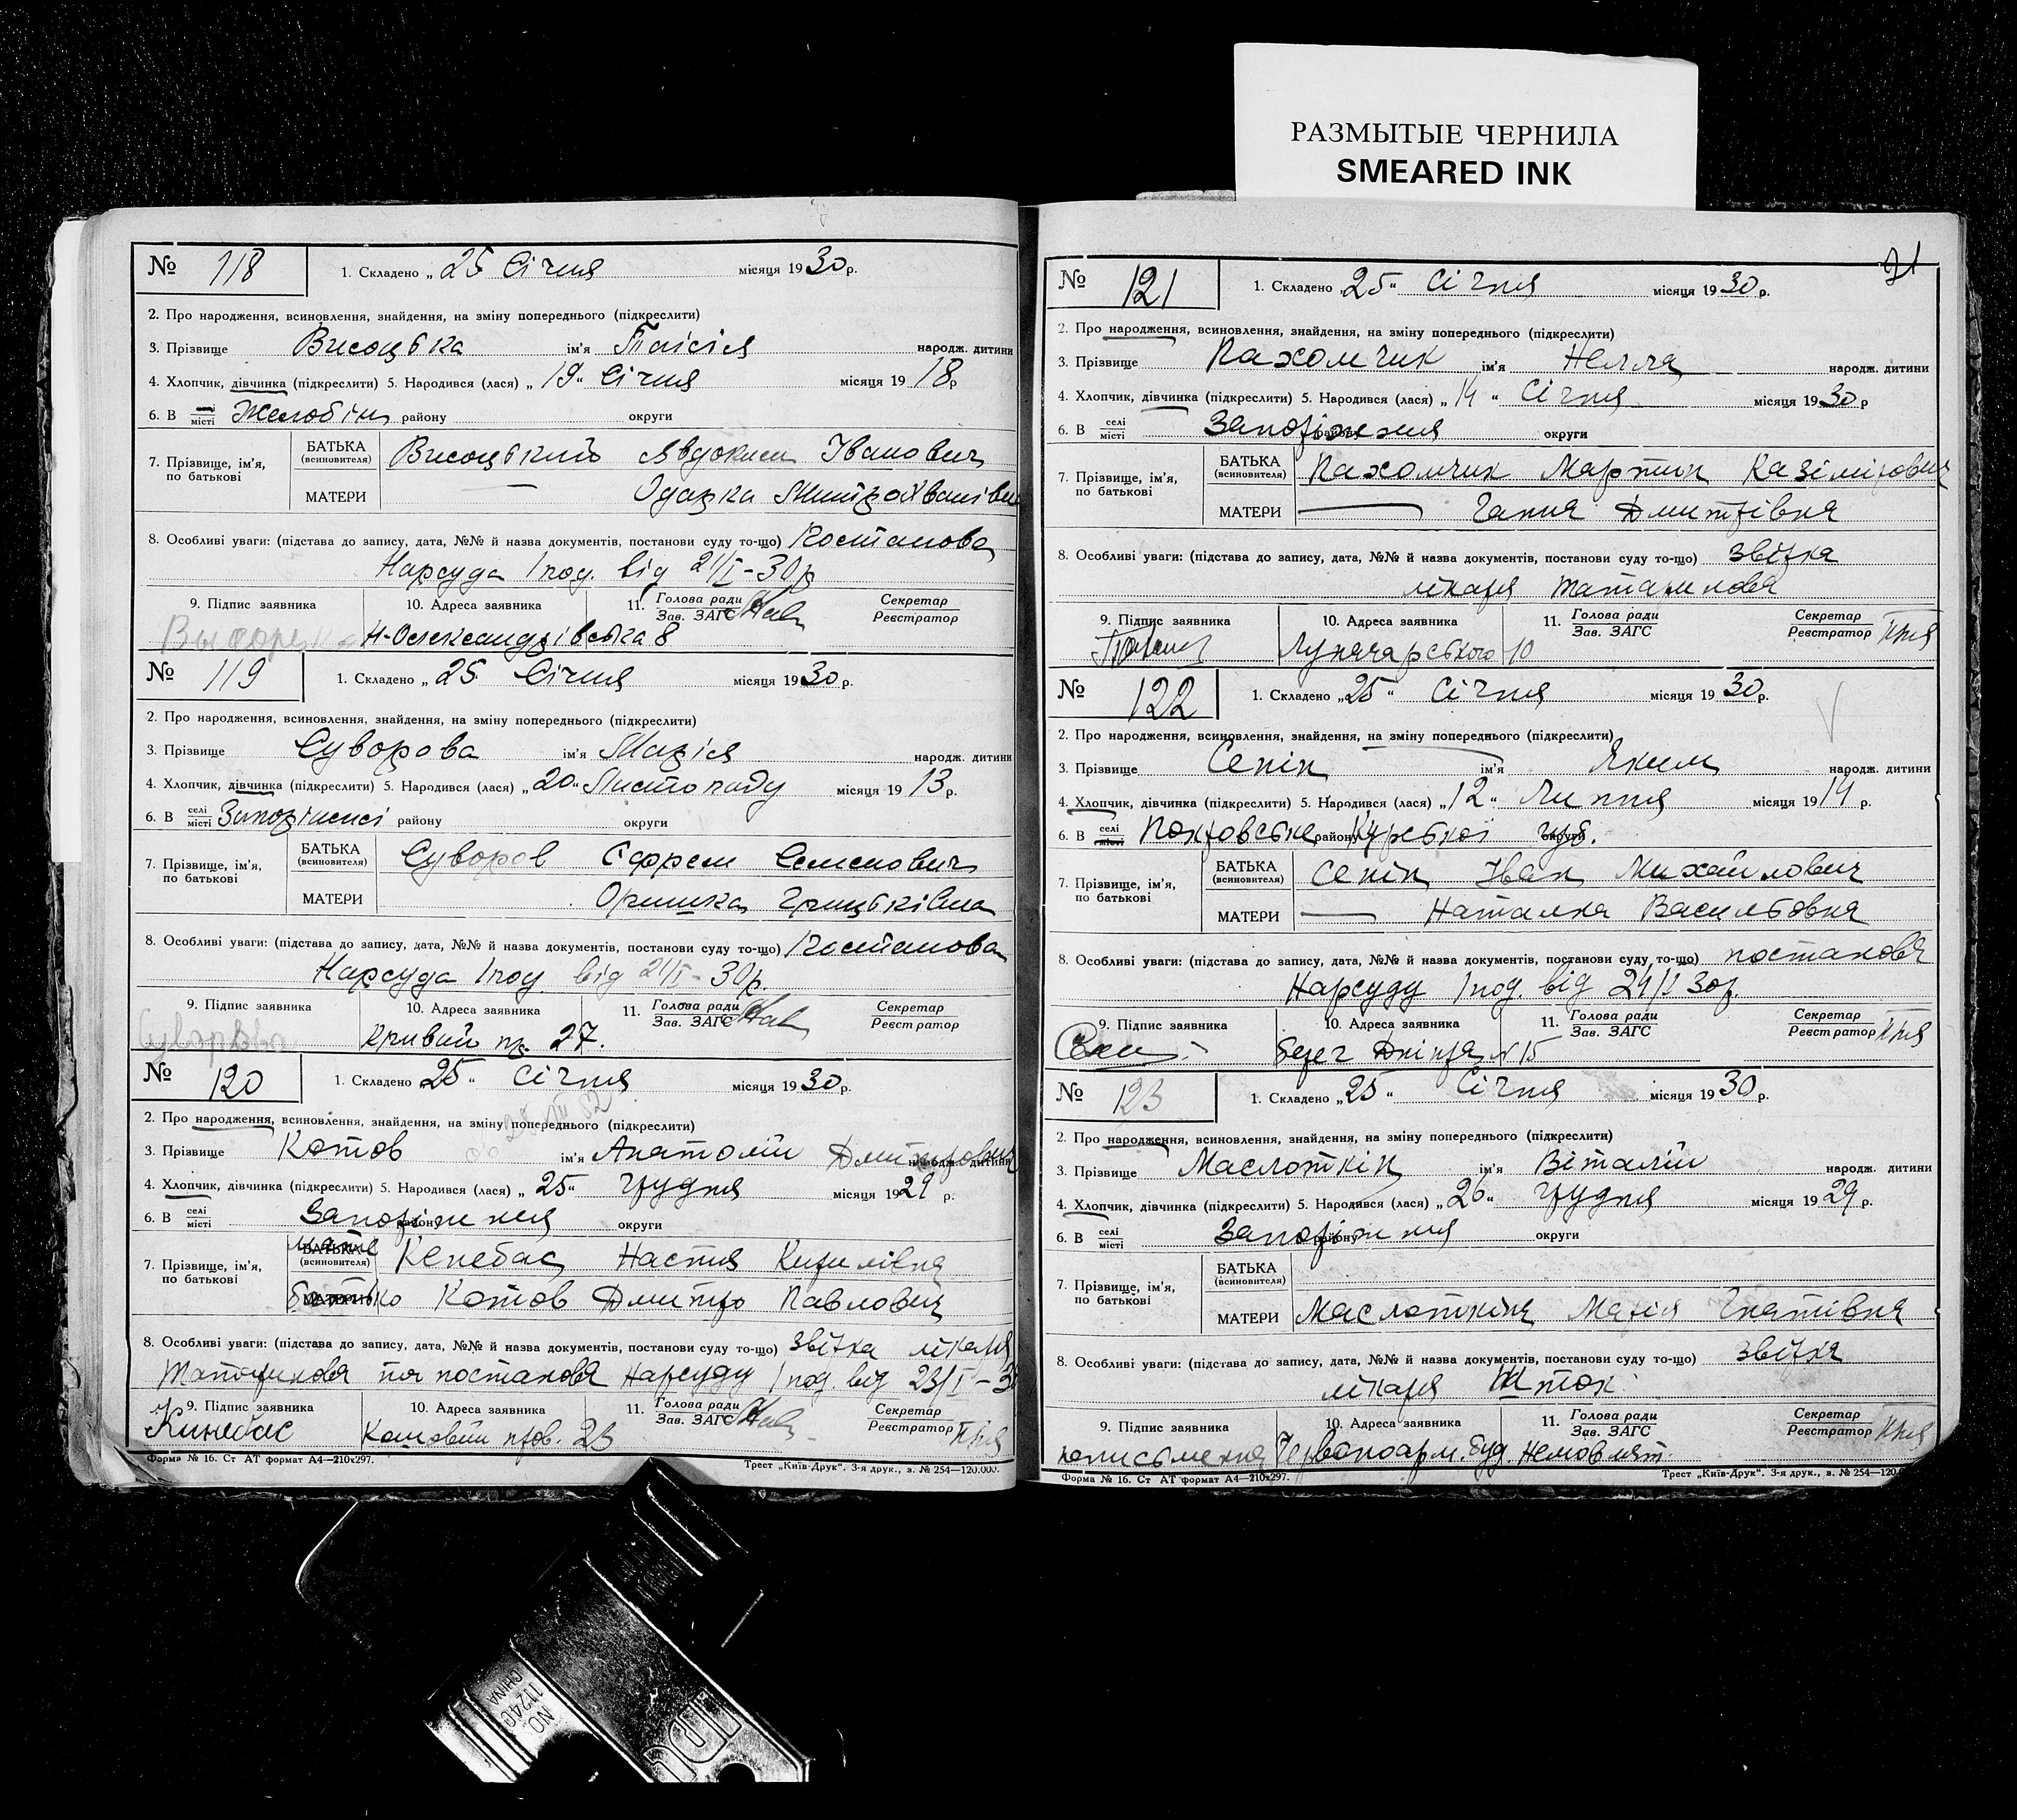 РАЗМЫТЫЕ ЧЕРНИЛА
SMEARED INK
№ 118 1. Складено „ 25 Січня місяця 1930 р.
2. Про народження, всиновлення, знайдення, на зміну попереднього (підкреслити)
3. Прізвище Висоцька ім'я Таісія народж. дитини
4. Хлопчик, дівчинка (підкреслити) 5. Народився (лася) „ 19 “ Січня місяця 1918 р
6. В місті Желобін району округи
7. Прізвище, ім'я, по батькові БАТЬКА (всиновителя) Висоцький Явдоким Іванович
МАТЕРИ — Одарка Митрохванівна
8. Особливі уваги: (підстава до запису, дата, №№ й назва документів, постанови суду то-що) Постанова
Нарсуда 1 под. від 21/I-30р
9. Підпис заявника 10. Адреса заявника 11. Голова ради Зав. ЗАГС Секретар Реєстратор
Н-Олександрівська 8
№ 119 1. Складено „ 25 Січня місяця 1930 р.
2. Про народження, всиновлення, знайдення, на зміну попереднього (підкреслити)
3. Прізвище Суворова ім'я Марія народж. дитини
4. Хлопчик, дівчинка (підкреслити) 5. Народився (лася) „ 20 “ Листопаду місяця 1913 р.
6. В селі місті Запоріжжі району округи
7. Прізвище, ім'я, по батькові БАТЬКА (всиновителя) Суворов Єфрем Семенович
МАТЕРИ Оришка Грицьківна
8. Особливі уваги: (підстава до запису, дата, №№ й назва документів, постанови суду то-що) Постанова
Нарсуда 1 под. від 21/I-30р.
9. Підпис заявника 10. Адреса заявника 11. Голова ради Зав. ЗАГС Секретар Реєстратор
Суворова Кривий пр. 27.
№ 120 1. Складено „ 25 “ Січня місяця 1930 р.
2. Про народження, всиновлення, знайдення, на зміну попереднього (підкреслити)
3. Прізвище Котов ім'я Анатолій Дмитрович народж. дитини
4. Хлопчик, дівчинка (підкреслити) 5. Народився (лася) „ 25 “ Грудня місяця 1929 р.
6. В селі місті Запоріжжя району округи
7. Прізвище, ім'я, по батькові мати БАТЬКА (всиновителя) Кенебас Настя Кирилівна
батько МАТЕРИ Котов Дмитро Павлович
8. Особливі уваги: (підстава до запису, дата, №№ й назва документів, постанови суду то-що) звітка лікаря
та постанова Нарсуду 1 под. від 23/I-3
9. Підпис заявника 10. Адреса заявника 11. Голова ради Зав. ЗАГС Секретар Реєстратор
Кинебас пров. 23
Форма № 16. Ст АТ формат А4—210x297. Трест „Київ-Друк“. 3-я друк., з. № 254—120.000.
№ 121 1. Складено „ 25 “ Січня місяця 1930 р.
2. Про народження, всиновлення, знайдення, на зміну попереднього (підкреслити)
3. Прізвище Пахомчик ім'я Нелля народж. дитини
4. Хлопчик, дівчинка (підкреслити) 5. Народився (лася) „ 14 “ Січня місяця 1930 р
6. В селі місті Запоріжжя району округи
7. Прізвище, ім'я, по батькові БАТЬКА (всиновителя) Пахомчик Мартин Казімірович
МАТЕРИ — Ганна Дмитрівна
8. Особливі уваги: (підстава до запису, дата, №№ й назва документів, постанови суду то-що) звітка
лікаря
9. Підпис заявника 10. Адреса заявника 11. Голова ради Зав. ЗАГС Секретар Реєстратор
Луначарського 10
№ 122 1. Складено „ 25 “ Січня місяця 1930 р.
2. Про народження, всиновлення, знайдення, на зміну попереднього (підкреслити)
3. Прізвище Сепін ім'я Яким народж. дитини
4. Хлопчик, дівчинка (підкреслити) 5. Народився (лася) „ 12 “ Липня місяця 1914 р.
6. В селі місті Покровське району Курської округи губ.
7. Прізвище, ім'я, по батькові БАТЬКА (всиновителя) Сепін Іван Михайлович
МАТЕРИ — Наталка Васильовна
8. Особливі уваги: (підстава до запису, дата, №№ й назва документів, постанови суду то-що) постанова
Нарсуду 1 под. від 24/I 30р.
9. Підпис заявника 10. Адреса заявника 11. Голова ради Зав. ЗАГС Секретар Реєстратор
берег Дніпра № 15
№ 123 1. Складено „ 25 “ Січня місяця 1930 р.
2. Про народження, всиновлення, знайдення, на зміну попереднього (підкреслити)
3. Прізвище Маслоткін ім'я Віталій народж. дитини
4. Хлопчик, дівчинка (підкреслити) 5. Народився (лася) „ 26 “ Грудня місяця 1929 р.
6. В селі місті Запоріжжя району округи
7. Прізвище, ім'я, по батькові БАТЬКА (всиновителя)
МАТЕРИ Маслоткіна Марія Гнатівна
8. Особливі уваги: (підстава до запису, дата, №№ й назва документів, постанови суду то-що) звітка
лікаря Шток
9. Підпис заявника 10. Адреса заявника 11. Голова ради Зав. ЗАГС Секретар Реєстратор
неписьменна Червоноарм. буд. немовлят.
Форма № 16. Ст АТ формат А4—210x297. Трест „Київ-Друк“. 3-я друк., з. № 254—120
NO 11240
CHINA